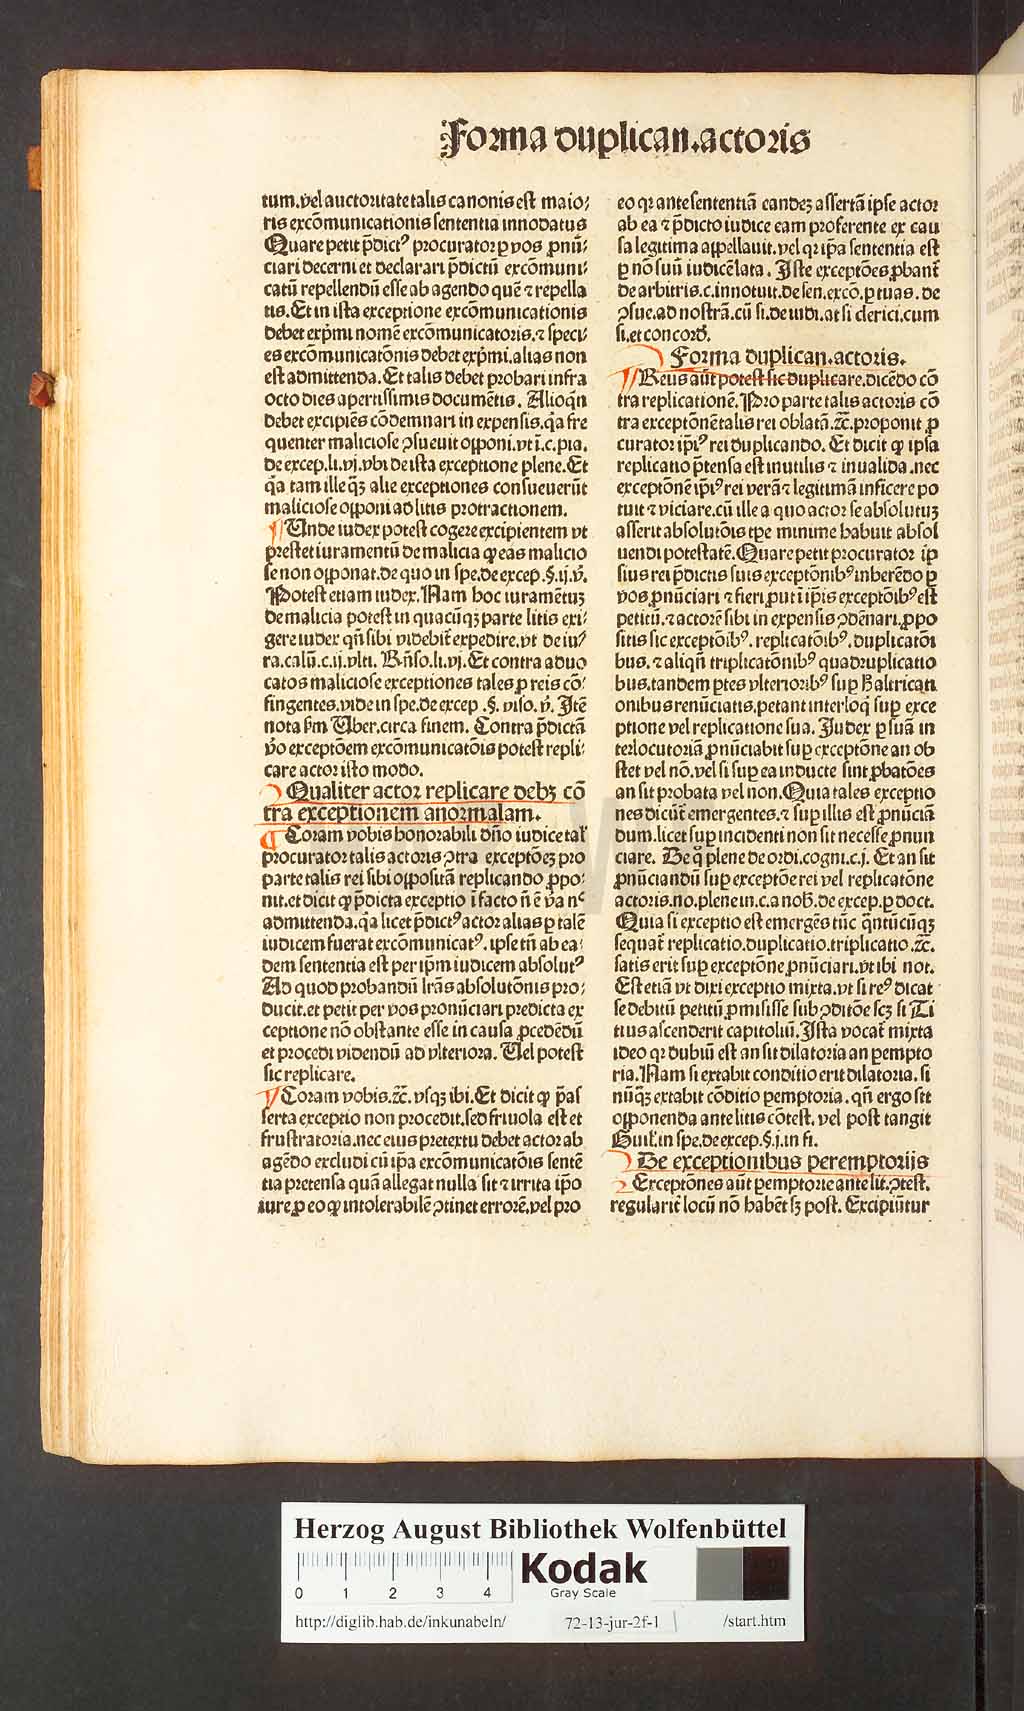 Forma duplican.actoris
tum.vel auctoritate talis canonis est maio⸗
ris excōmunicationis sententia innodatus
Quare petit p̄dictꝰ procurator ꝑ vos ꝓnū⸗
ciari decerni et declarari p̄dictū excōmuni⸗
catū repellendū esse ab agendo quē ⁊ repella
tis. Et in ista exceptione excōmunicationis
debet exp̄mi nomē excōmunicatoris.⁊ speci⸗
es excōmunicatōnis debet exp̄mi.alias non
est admittenda. Et talis debet probari infra
octo dies apertissimis documētis. Alioqn̄
debet excipiēs cōdemnari in expensis.q̄a fre
quenter maliciose ꝯsueuit opponi.vt ī.c.pia.
de excep.li.vj.vbi de ista exceptione plene. Et
q̄a tam ille qꝫ alie exceptiones consueuerūt
maliciose opponi ad litis protractionem.
¶ Unde iudex potest cogere excipientem vt
prestet iuramentū de malicia ꝙ eas malicio
se non opponat.de quo in spe.de excep.§.ij.v̄.
Potest etiam iudex. Nam hoc iuramētuꝫ
de malicia potest in quacūqꝫ parte litis exi⸗
gere iudex qn̄ sibi videbit̄ expedire.vt de iu⸗
ra.calū.c.ij.vlti. Rn̄so.li.vj. Et contra aduo
catos maliciose exceptiones tales ꝓ reis cō⸗
fingentes.vide in spe.de excep.§.viso.v̄. Itē
nota ſm Uber.circa finem. Contra p̄dictā
v̄o exceptōem excōmunicatōis potest repli⸗
care actor isto modo.
Qualiter actor replicare debꝫ cō
tra exceptionem anormalam.
¶ Coram vobis honorabili dn̄o iudice tal̄
procurator talis actoris ꝯtra exceptōeꝫ pro
parte talis rei sibi oppositā replicando ꝓpo⸗
nit.et dicit ꝙ p̄dicta exceptio ī facto n̄ ē v̄a nᶜ
admittenda.q̄a licet p̄dictꝰ actor alias ꝑ talē
iudicem fuerat excōmunicatꝰ.ipse tn̄ ab ea⸗
dem sententia est per ip̄m iudicem absolutꝰ
Ad quod probandū lr̄as absolutōnis pro⸗
ducit.et petit per vos pronūciari predicta ex
ceptione nō obstante esse in causa ꝓcedēdū
et procedi videndū ad vlteriora. Uel potest
sic replicare.
¶ Coram vobis.⁊c̄.vsqꝫ ibi. Et dicit ꝙ p̄as
serta exceptio non procedit.sed friuola est et
frustratoria.nec eius pretextu debet actor ab
agēdo excludi cū ip̄a excōmunicatōis sentē
tia pretensa quā allegat nulla sit ⁊ irrita ip̄o
iure.ꝓ eo ꝙ intolerabilē ꝯtinet errorē.vel pro
eo qr ante sententiā eandeꝫ assertā ipse actor
ab ea ⁊ p̄dicto iudice eam proferente ex cau
sa legitima appellauit.vel qr ip̄a sententia est
ꝑ nō suū iudicē lata. Iste exceptōes ꝓbant̄
de arbitris.c.innotuit.de sen.excō.ꝑ tuas.de
ꝯsue.ad nostrā.cū si.de iudi.at si clerici.cum
si.et concord̄.
Forma duplican.actoris.
¶ Reus aūt potest sic duplicare.dicēdo cō
tra replicationē. Pro parte talis actoris cō
tra exceptōnē talis rei oblatā.⁊c̄.proponit ꝓ
curator ip̄iꝰ rei duplicando. Et dicit ꝙ ipsa
replicatio p̄tensa est inutilis ⁊ inualida.nec
exceptōnē ip̄iꝰ rei verā ⁊ legitimā inficere po
tuit ⁊ viciare.cū ille a quo actor se absolutuꝫ
asserit absolutōis tꝑe minime habuit absol
uendi potestatē. Quare petit procurator ip̄
sius rei p̄dictis suis exceptōnibꝰ inherēdo ꝑ
vos ꝓnūciari ⁊ fieri ꝓut ī ip̄is exceptōibꝰ est
petitū.⁊ actorē sibi in expensis ꝯdēnari.ꝓpo
sitis sic exceptōibꝰ.replicatōibꝰ.duplicatōi
bus.⁊ aliqn̄ triplicatōnibꝰ quadruplicatio
bus.tandem ꝑtes vlterioribꝰ suꝑ h̄ altrican
onibus renūciatis.petant interloq̄ suꝑ exce
ptione vel replicatione sua. Iudex ꝑ suā in
terlocutoriā ꝓnūciabit suꝑ exceptōne an ob
stet vel nō.vel si suꝑ ea inducte sint ꝓbatōes
an sit probata vel non. Quia tales exceptio
nes dicūt̄ emergentes.⁊ suꝑ illis est ꝓnūciā
dum.licet suꝑ incidenti non sit necesse ꝓnun
ciare. De q̄ plene de ordi.cogni.c.j. Et an sit
ꝓnūciandū suꝑ exceptōe rei vel replicatōne
actoris.no.plene in.c.a nob̄.de excep.ꝑ doct.
Quia si exceptio est emergēs tūc qn̄tūcūqꝫ
sequat̄ replicatio.duplicatio.triplicatio.⁊c̄.
satis erit suꝑ exceptōne ꝓnūciari.vt ibi not.
Est etiā vt dixi exceptio mixta.vt si reꝰ dicat
se debitū petitū ꝓmisisse sub ꝯditōe scꝫ si Ti
tius ascenderit capitoliū. Ista vocat̄ mixta
ideo qr dubiū est an sit dilatoria an ꝑempto
ria. Nam si extabit conditio erit dilatoria.si
nūqꝫ extabit cōditio ꝑemptoria.qn̄ ergo sit
opponenda ante litis cōtest.vel post tangit
Guil̄.in spe.de excep.§.j.in fi.
De exceptionibus peremptorijs
Exceptōnes aūt ꝑemptorie ante lit.ꝯtest.
regularit̄ locū nō habēt sꝫ post. Excipiūtur
Herzog August Bibliothek Wolfenbüttel
0 1 2 3 4
Kodak
Gray Scale
http://diglib.hab.de/inkunabeln/ 72-13-jur-2f-1 /start.htm